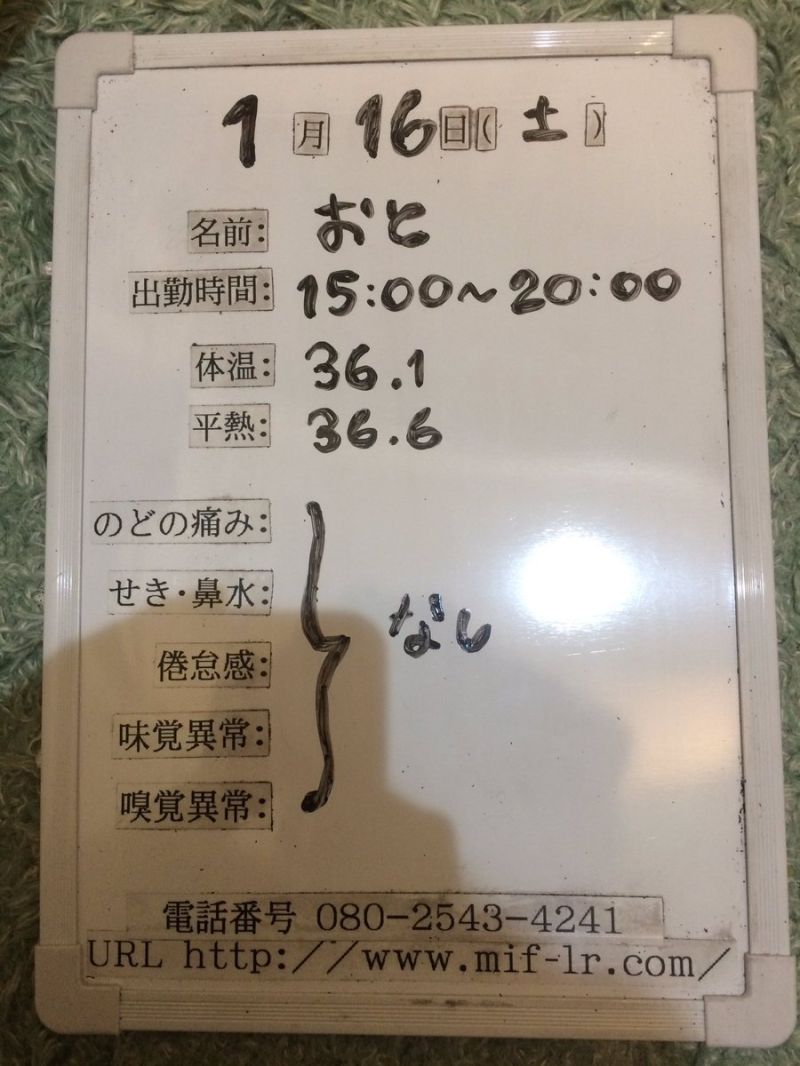 1月16日(土)
名前: おと
出勤時間: 15:00~20:00
体温: 36.1
平熱: 36.6
のどの痛み:
せき・鼻水:
なし
倦怠感:
味覚異常:
嗅覚異常:
電話番号 080-2543-4241
URL http://www.mif-lr.com/